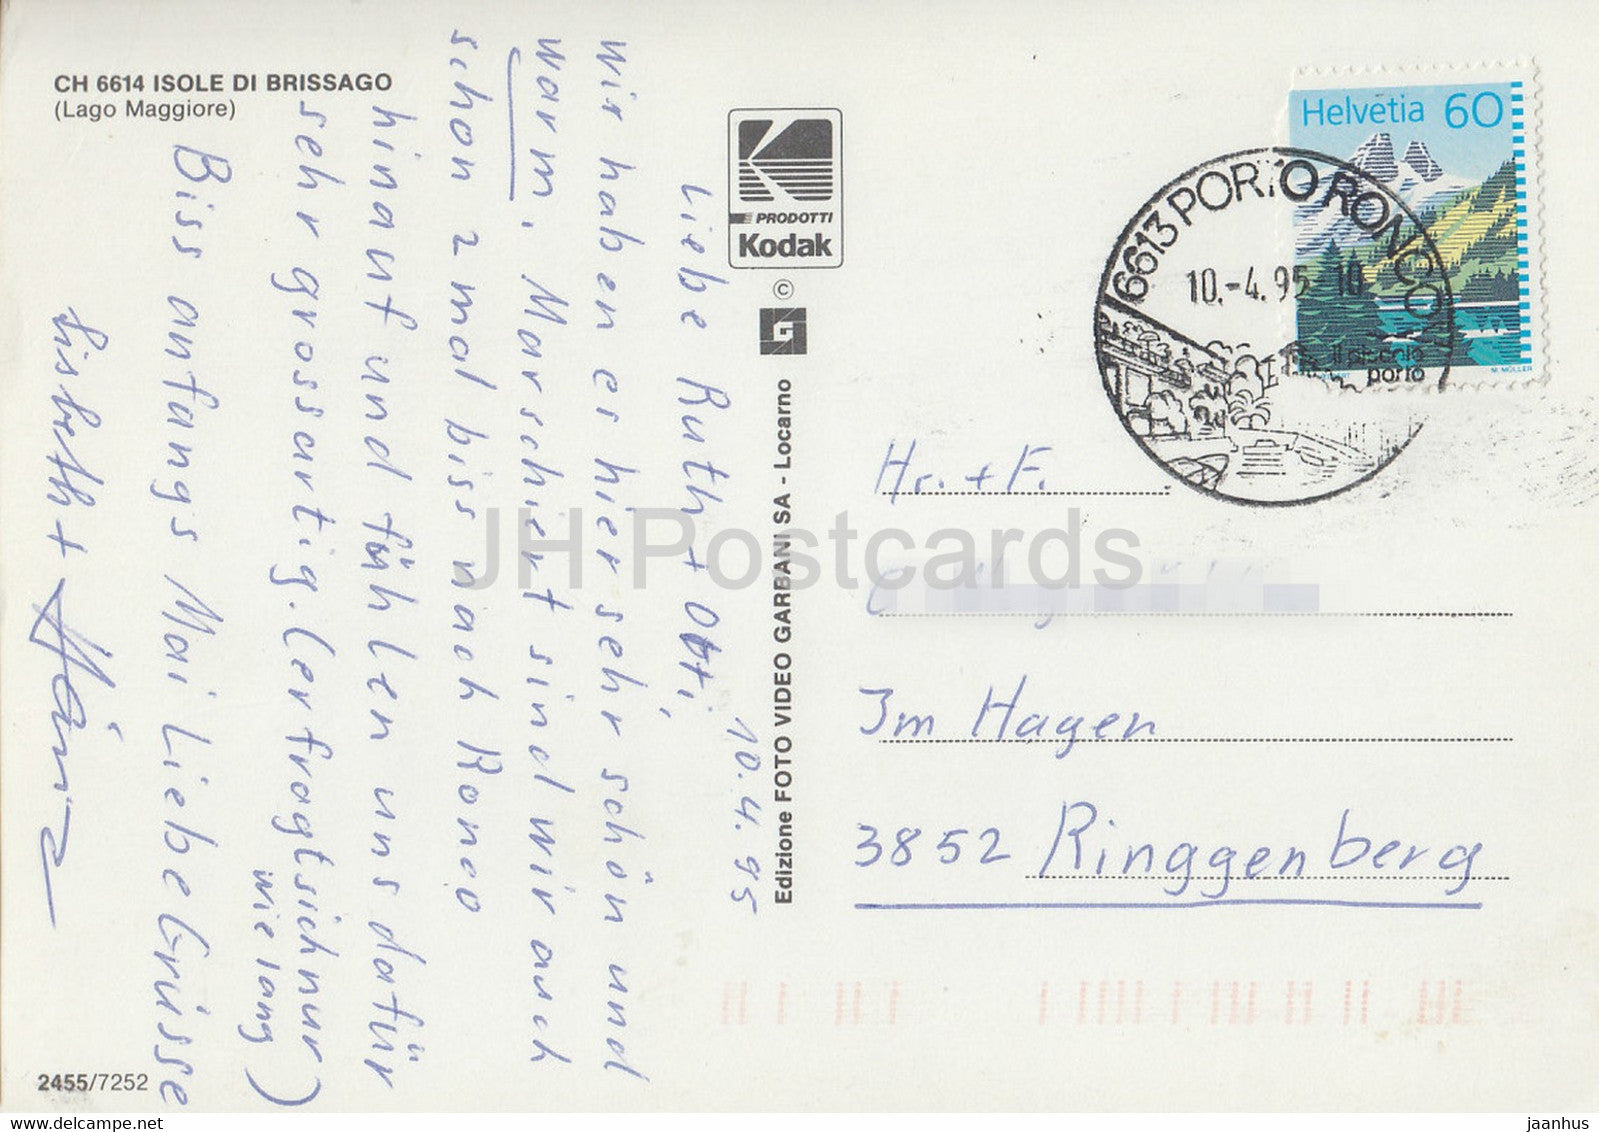 CH 6614 ISOLE DI BRISSAGO
(Lago Maggiore)
PRODOTTI
Kodak
©
G
Edizione FOTO VIDEO GARBANI SA - Locarno
2455/7252
10.4.95
Liebe Ruth + Otti,
wir haben es hier sehr schön und
warm. Marschiert sind wir auch
schon 2 mal biss nach Ronco
hinauf und fühlen uns dafür
sehr grossartig. (er fragt sich nur
wie lang)
Biss anfangs Mai Liebe Grüsse
Lisbeth + Heinz
Helvetia 60
M. MÜLLER
6613 PORTO RONCO
10.-4.95 10
il piccolo
porto
Hr. + F.
Im Hagen
3852 Ringgenberg
JH Postcards
delcampe.net
jaanhus